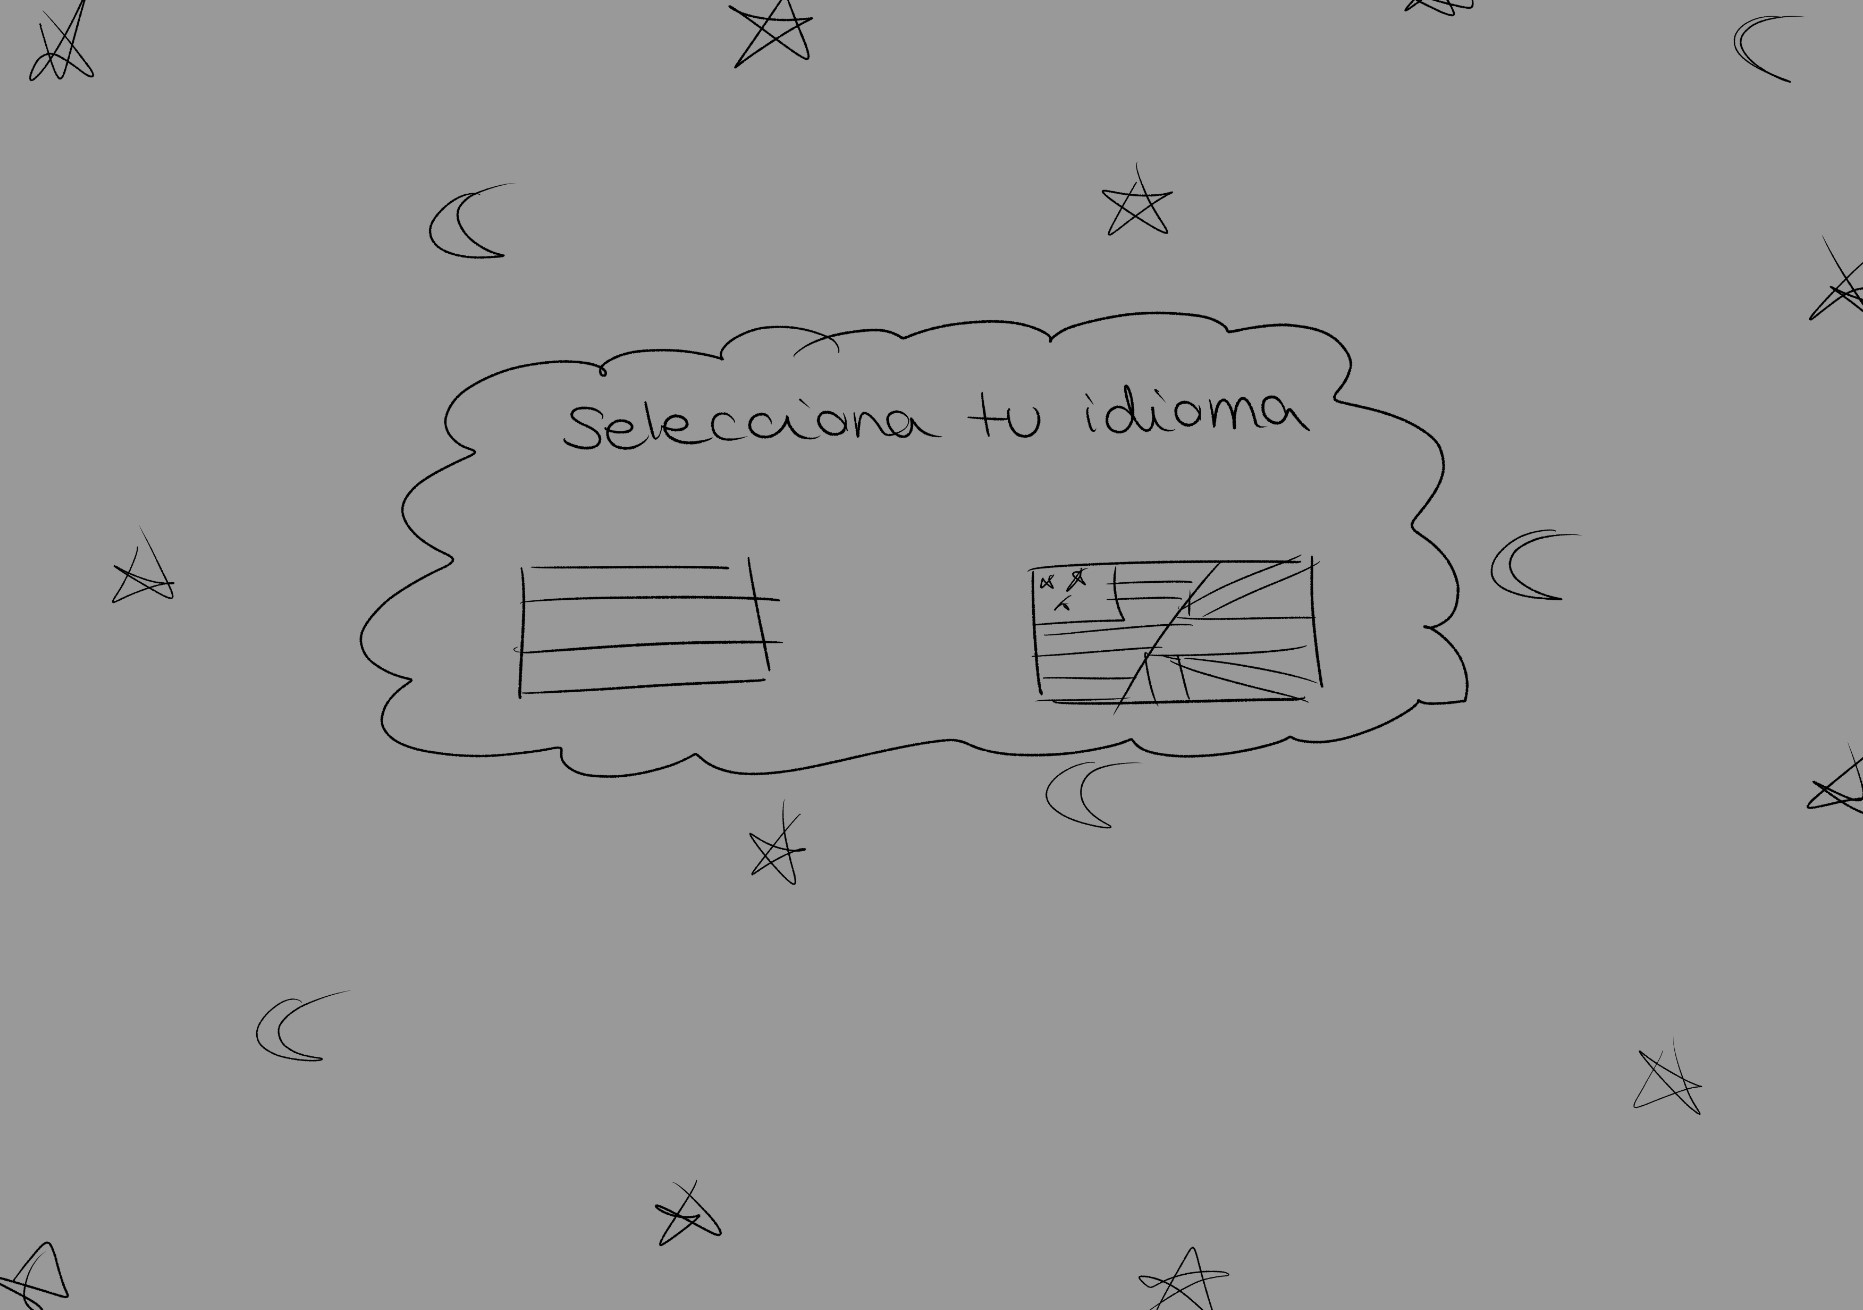 Selecciona tu idioma